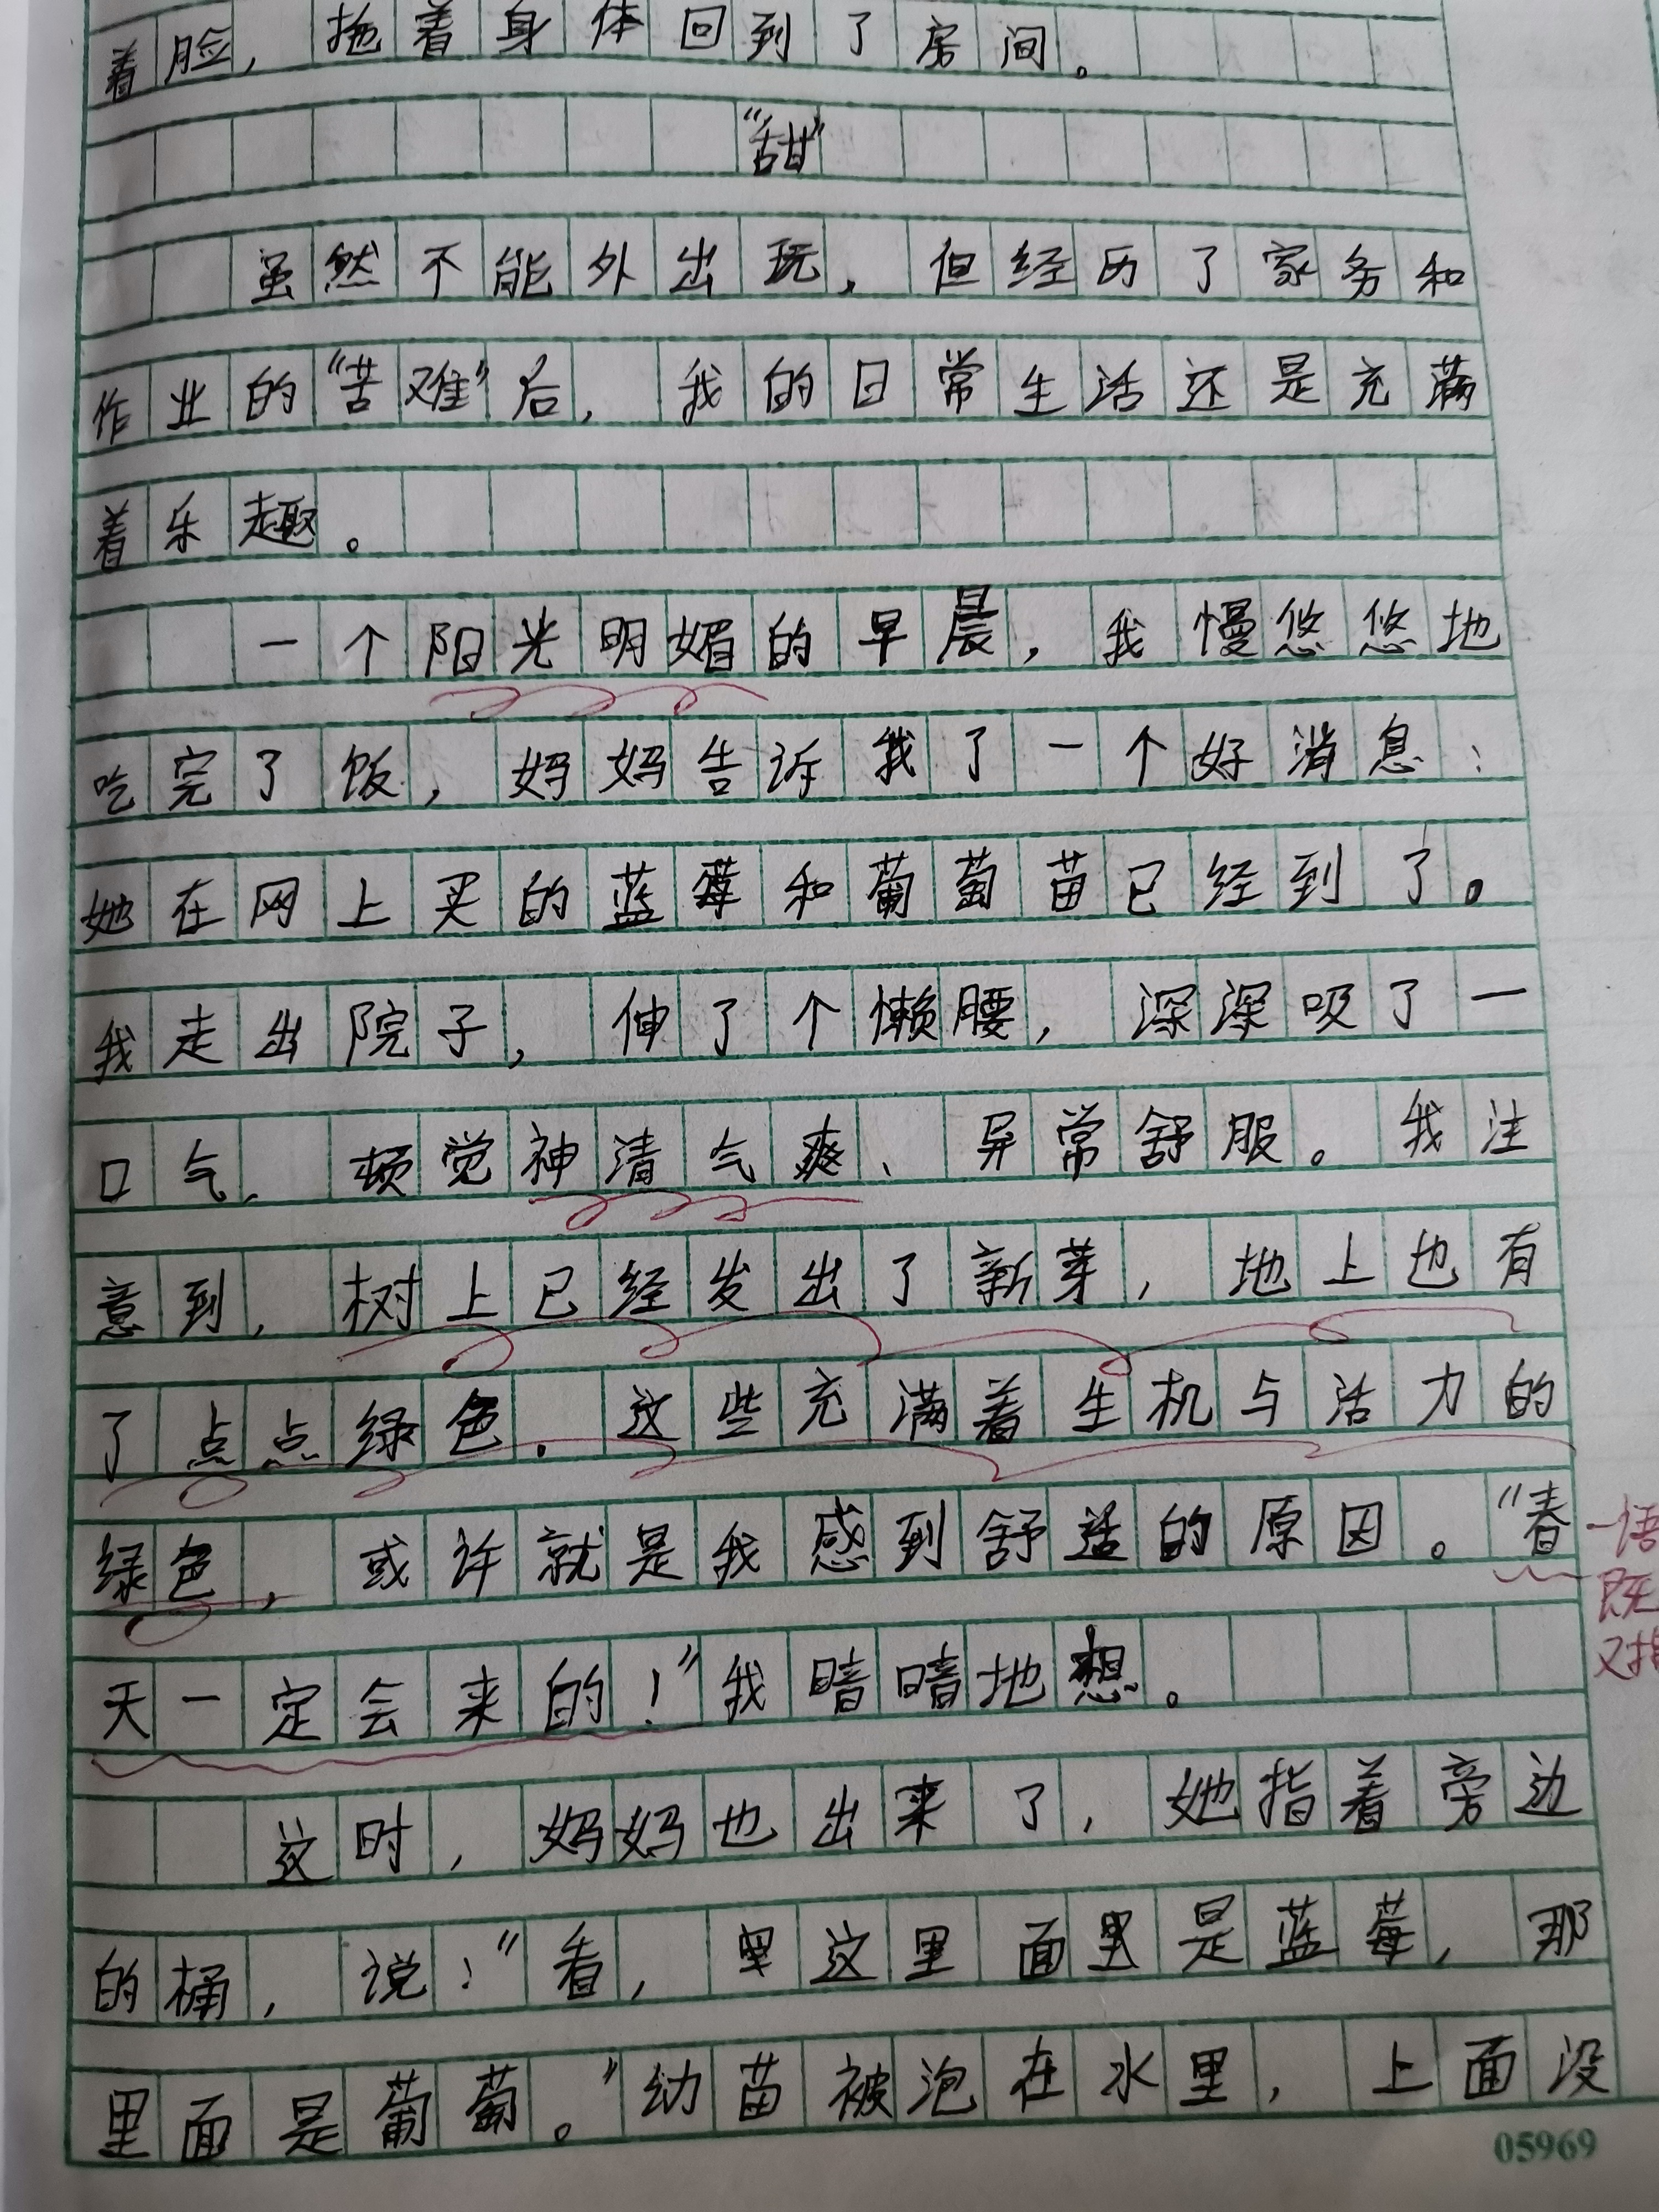 着脸，拖着身体回到了房间。
“甜”
虽然不能外出玩，但经历了家务和
作业的“苦难”后，我的日常生活还是充满
着乐趣。
一个阳光明媚的早晨，我慢悠悠地
吃完了饭，妈妈告诉我了一个好消息：
她在网上买的蓝莓和葡萄苗已经到了。
我走出院子，伸了个懒腰，深深吸了一
口气，顿觉神清气爽、异常舒服。我注
意到，树上已经发出了新芽，地上也有
了点点绿色。这些充满着生机与活力的
绿色，或许就是我感到舒适的原因。“春
天一定会来的！”我暗暗地想。
一语
既
又
这时，妈妈也出来了，她指着旁边
的桶，说：“看，里这里面里是蓝莓，那
里面是葡萄。”幼苗被泡在水里，上面没
05969